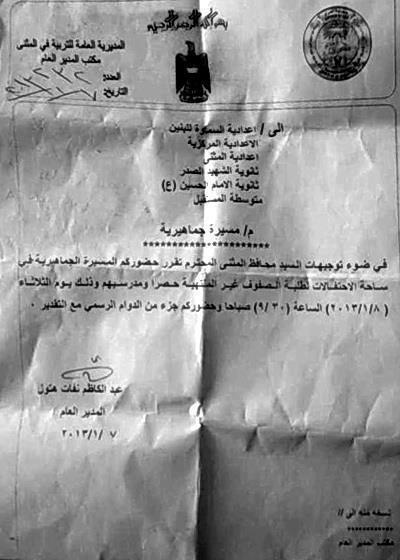 بسم الله الرحمن الرحيم
المديرية العامة للتربية في المثنى
مكتب المدير العام
العدد:
التاريخ:
الى / إعدادية السماوة للبنين
الاعدادية المركزية
اعدادية المثنى
ثانوية الشهيد الصدر
ثانوية الامام الحسين (ع)
متوسطة المستقبل
م/ مسيرة جماهيرية
********************
في ضوء توجيهات السيد محافظ المثنى المحترم تقرر حضوركم المسيرة الجماهيرية في
ساحة الاحتفالات لطلبة الصفوف غير المنتهية حصرا ومدرسيهم وذلك يوم الثلاثاء
(٢٠١٣/١/٨) الساعة (٩/٣٠) صباحا وحضوركم جزء من الدوام الرسمي مع التقدير .
عبد الكاظم نفات هتول
المدير العام
٢٠١٣/١/٧
نسخه منه الى //
***********
مكتب المدير العام